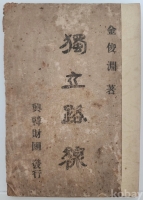 金俊淵 著
獨立路線
興韓財團 發行
kobay